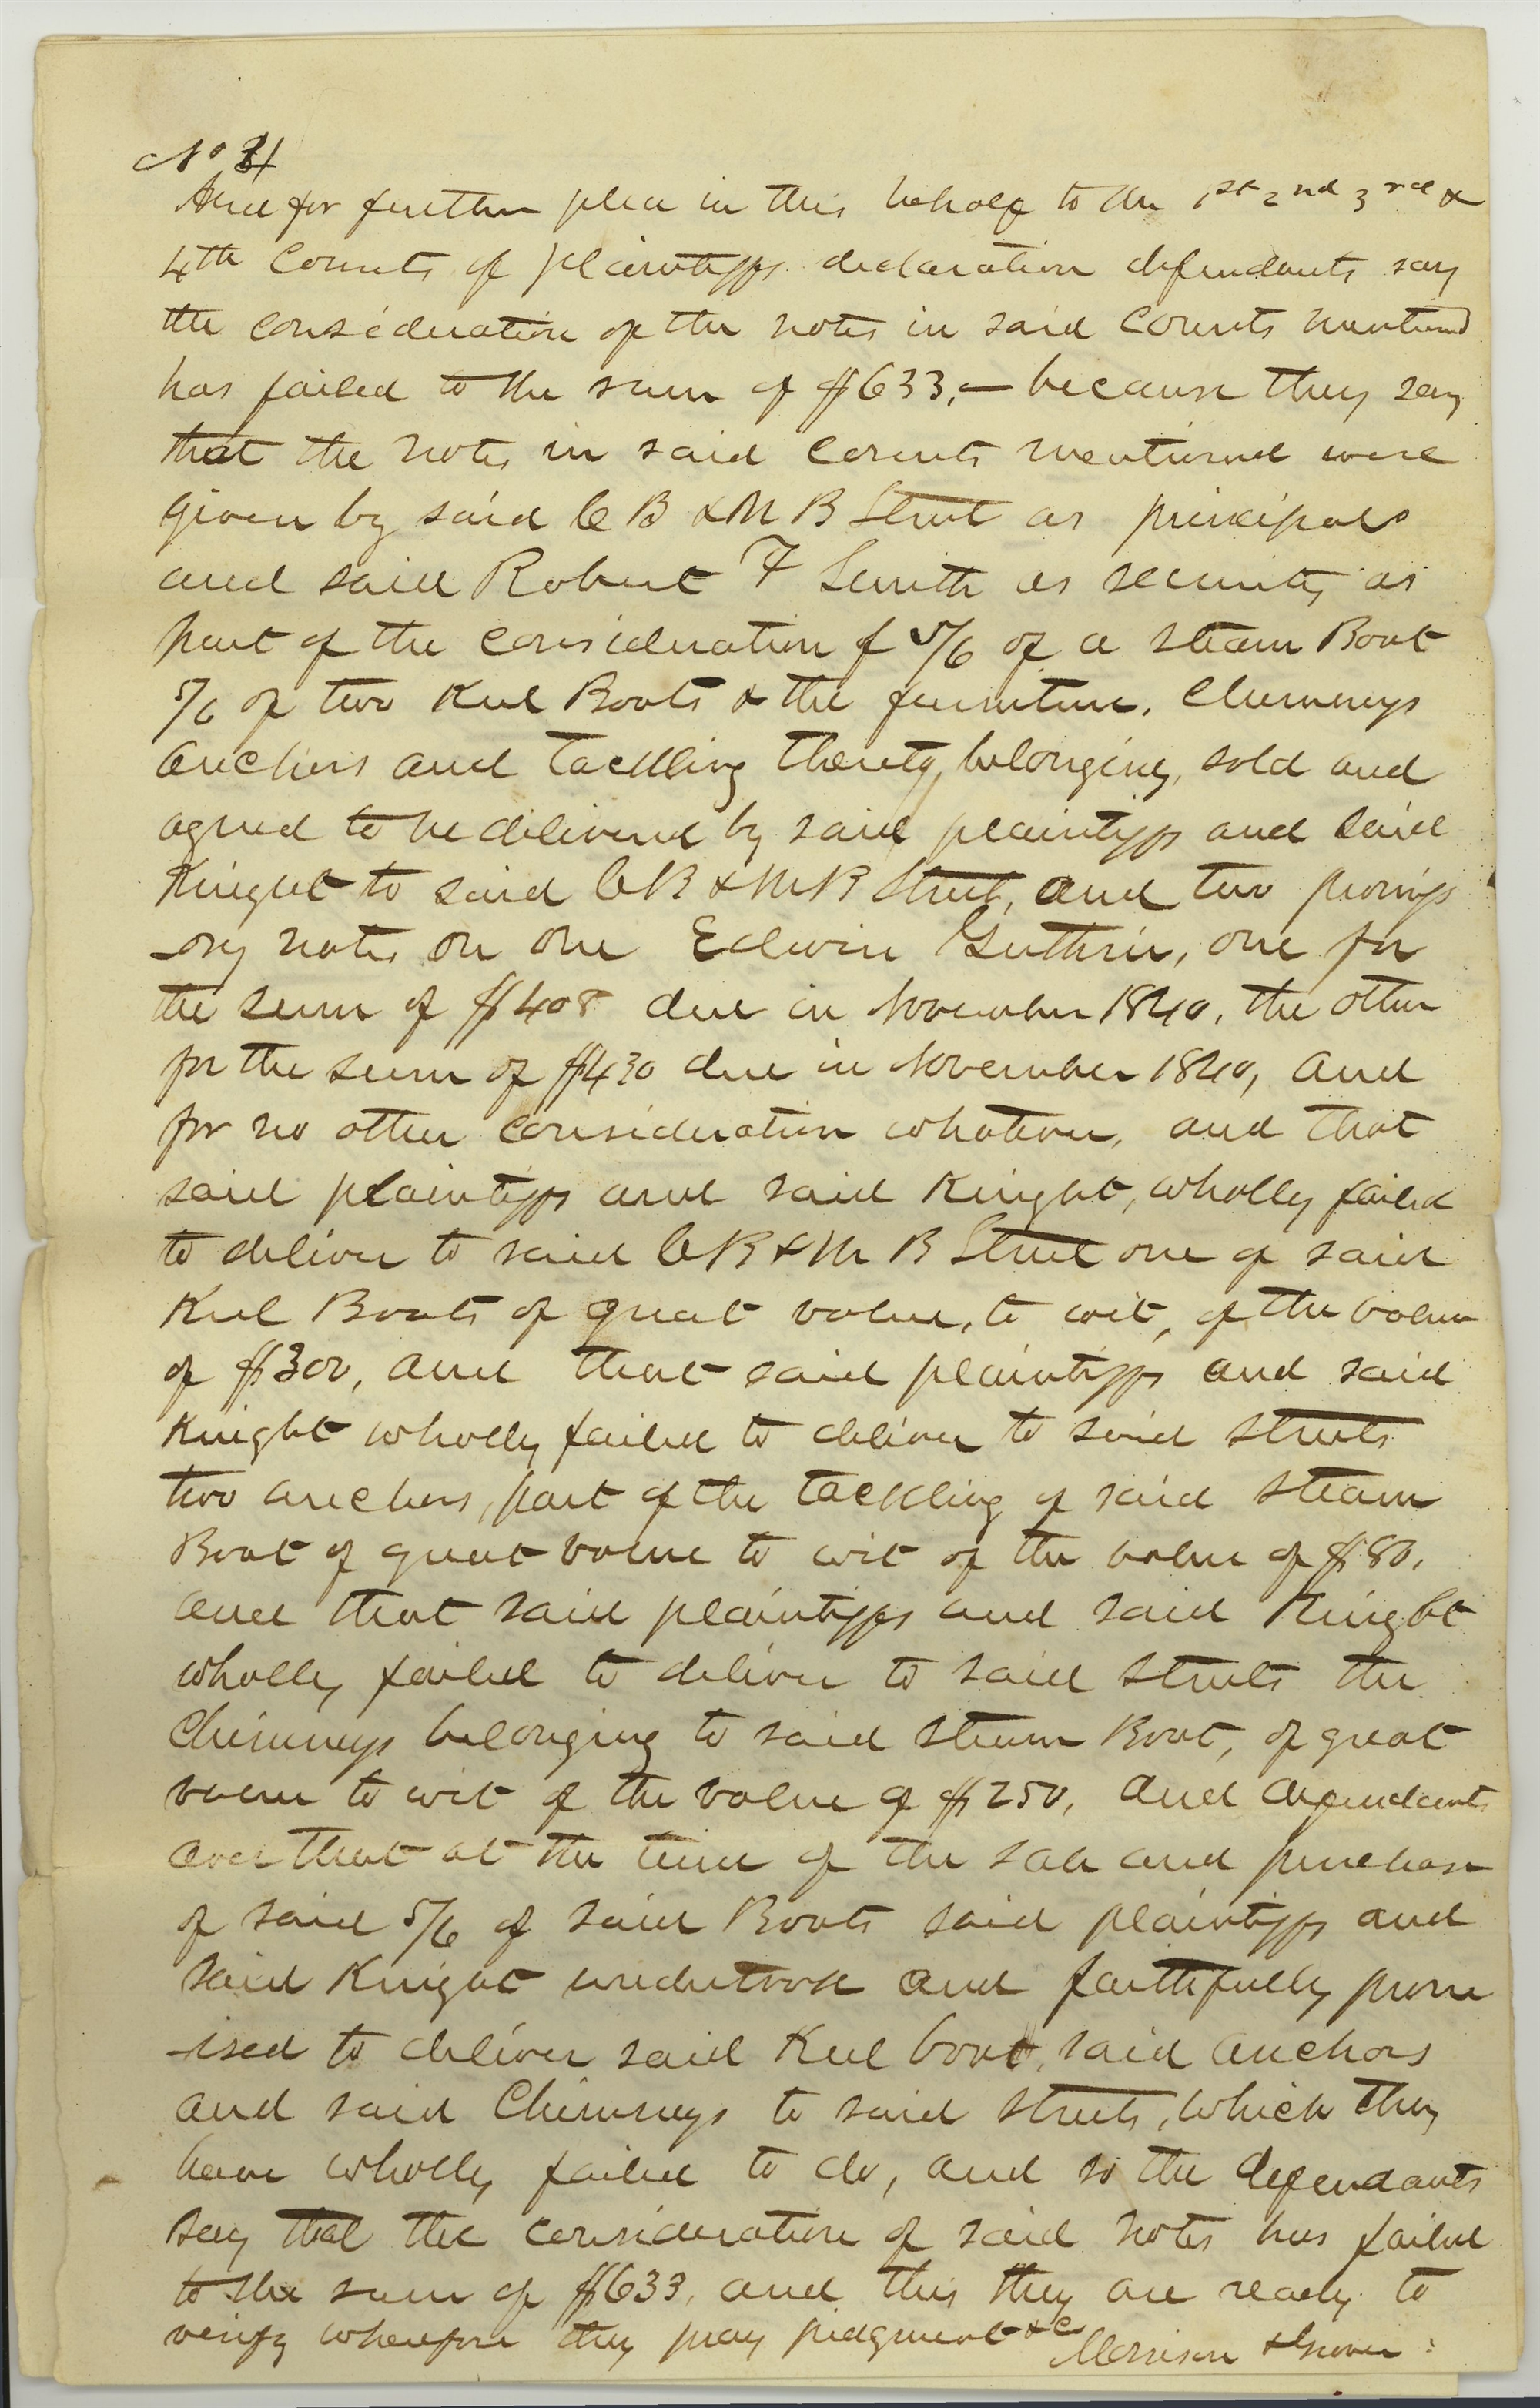 No 4
And for further plea in this behalf to the 1st 2nd 3rd &
4th Counts of plaintiffs declaration defendants say
the consideration of the notes in said Counts mentioned
has failed to the sum of $633,— because they say
that the notes in said Counts mentioned were
given by said C B & M B Street as principals
and said Robert F Smith as security as
part of the consideration of 5/6 of a Steam Boat
5/6 of two Keel Boats & the furniture, Chimneys
anchors and tackling thereto, belonging, sold and
agreed to be delivered by said plaintiffs and said
Knight to said C B & M B Street, and two promiss
-ory notes on one Edwin Guthrie, one for
the sum of $408 due in November 1840, the other
for the sum of $430 due in November 1840, and
for no other consideration whatever, and that
said plaintiffs and said Knight, wholly failed
to deliver to said C B & M B Street one of said
Keel Boats of great value, to wit, of the value
of $300, and that said plaintiffs and said
Knight wholly failed to deliver to said Streets
two anchors, part of the tackling of said Steam
Boat of great value to wit of the value of $80,
and that said plaintiffs and said Knight
wholly failed to deliver to said Streets the
Chimneys belonging to said Steam Boat, of great
value to wit of the value of $250, And defendants
aver that at the time of the sale and purchase
of said 5/6 of said Boats said plaintiffs and
said Knight undertook and faithfully prom
-ised to deliver said Keel boat, said anchors
and said Chimneys to said Streets, which they
have wholly failed to do, and so the defendants
say that the consideration of said notes has failed
to the sum of $633, and this they are ready to
verify wherefore they pray judgment &c
Morrison &